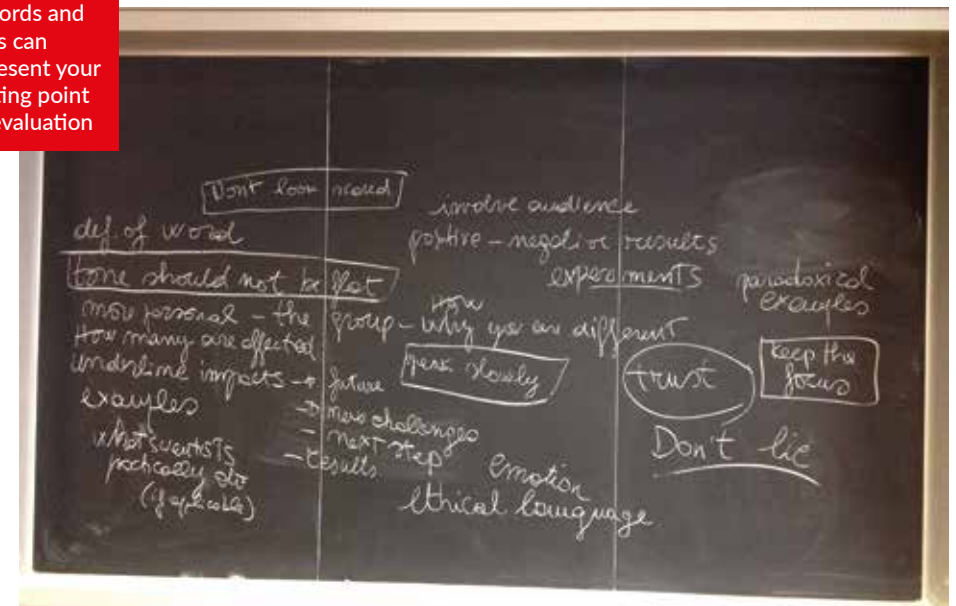 ords and
s can
esent your
ting point
evaluation
Dont look scared
def. of word
tone should not be flat
more personal - the group - why you are different
How
How many are affected
underline impacts → future
examples
→ new challenges
- next step
- results
what scientists
practically do
(if aplicable)
involve audience
positive - negative results
experiments
speak slowly
emotion
ethical language
paradoxical
examples
trust
keep the
focus
Don't lie